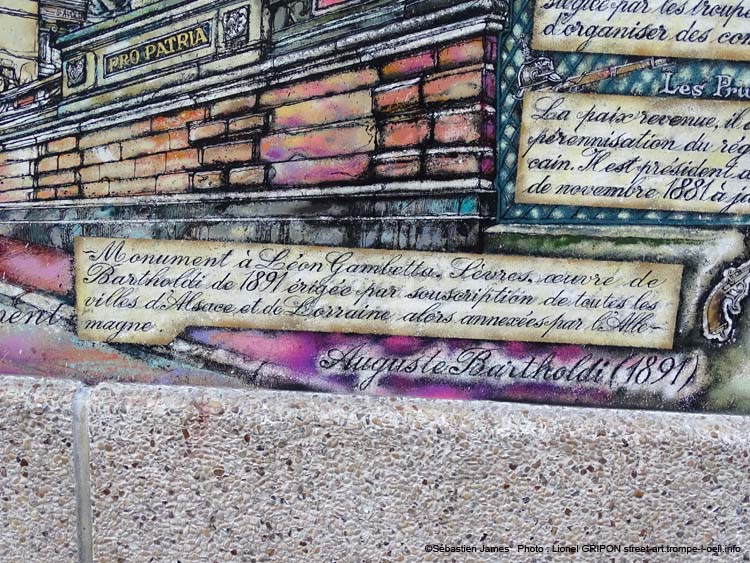 PRO PATRIA
siégée par les troup
d'organiser des con
Les Pru
La paix revenue, il
pérennisation du rég
cain. Il est président
de novembre 1881 à ja
Monument à Léon Gambetta. Sèvres. œuvre de
Bartholdi de 1891 érigée par souscription de toutes les
villes d'Alsace et de Lorraine alors annexées par l'Alle-
magne.
ment
Auguste Bartholdi (1891)
©Sébastien James" Photo : Lionel GRIPON street-art.trompe-l-oeil.info